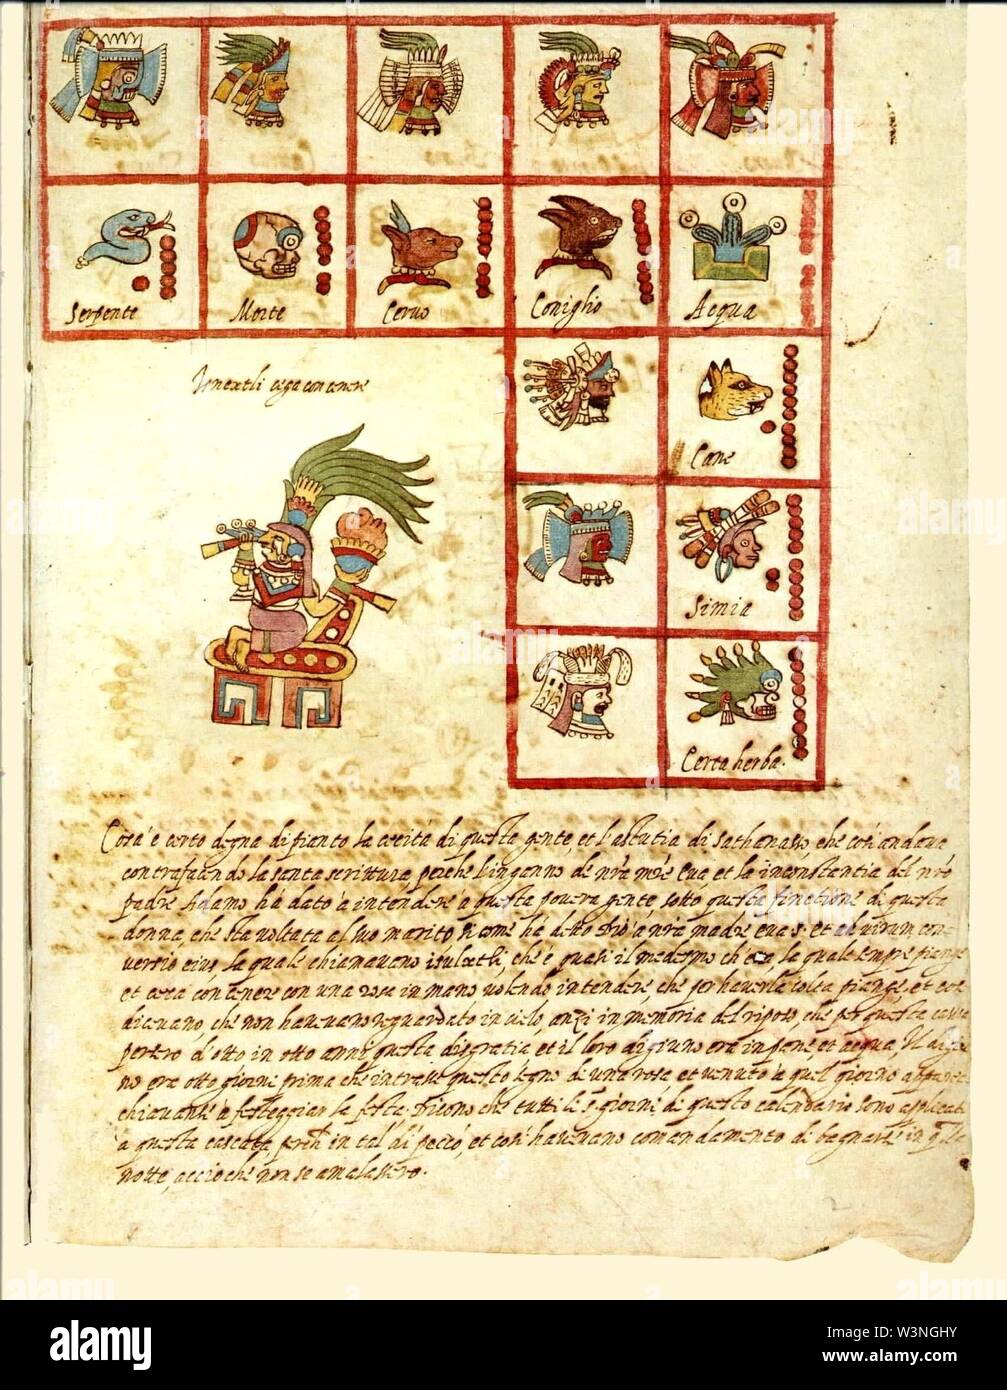 Serpente Morte Ceruo Coniglio Acqua
cega con cenere
Cane
Simia
Certa herba.
Cosa è certo degna di pianto la cecità di questa gente, et l'astutia di Sathanasso, che così andaua
contrafacendo la santa scrittura, perche l'inganno de nra mre Eua et la inconstantia del nro
padre Adamo hà dato à intendere à questa pouera gente sotto questa fintione di questa
donna, che sta voltata al suo marito si come hà detto Dio à nra madre Eua et ad uirum con
uersio eius, la quale chiamauano che è quasi il medesmo ch'Eua, la quale sempre piange
et con cenere con una rosa in mano uolendo intendere, che per hauerla colta piange, et
diceuano, che non haueuano reguardato in cielo, anzi in memoria del riposo, che per questa causa
d'otto in otto anni questa disgratia et il loro digiuno era in pane, et acqua, Il
no era otto giorni prima che intrasse questo segno di una rosa et uenuto à quel giorno
à festeggiar la festa. Dicono che tutti li 5 giorni di questo calendario sono
à questa cascata, in tal' dì peccò, et così haueuano comandamento di bagnarse in
notte, accioche non se amalassero.
alamy
Image ID: W3NGHY
www.alamy.com